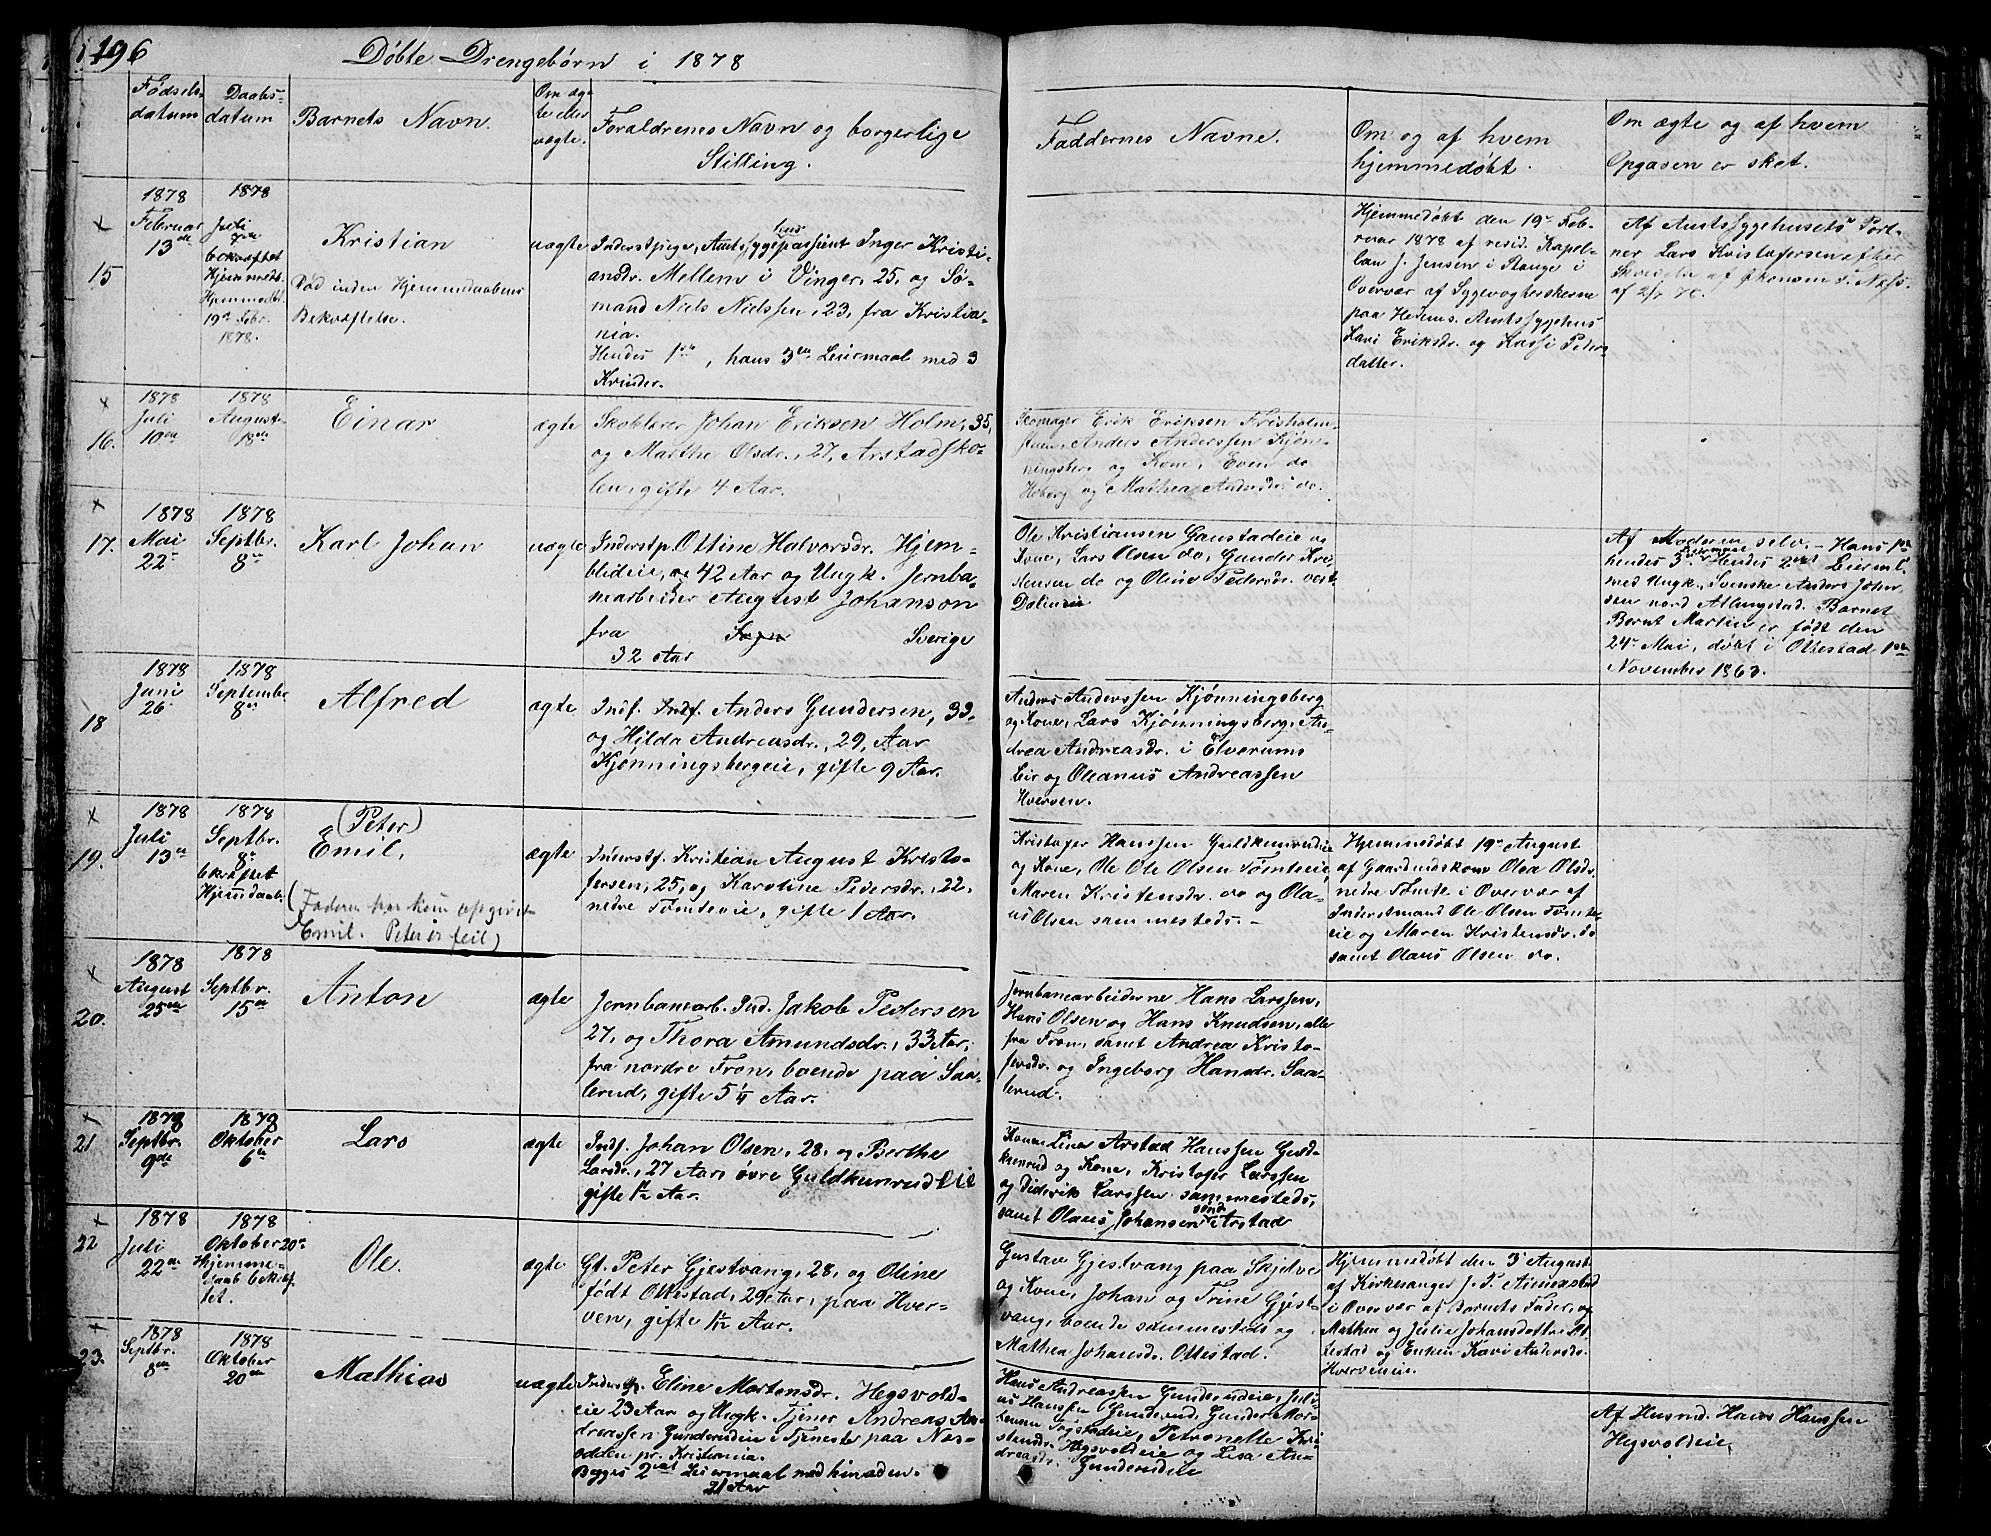 196
Døbte Drengebørn i 1878
Fødsels-
datum
Daabs-
datum
Barnets Navn.
Om æg-
te eller
uægte.
Forældrenes Navn og borgerlige
Stilling.
Faddernes Navne.
Om og af hvem
hjemmedøbt.
Om ægte og af hvem
Opgaven er sket.
15
1878
Februar
13de
1878
Juli
bekræftet
Hjemmedb.
Hjemmedøbt
19de Febr.
1878.
Kristian
Død inden Hjemmedaabens
Bekræftelse.
uægte
Inderstpige, Amtssygehuspassient Inger Kristi-
ansdr. Mellem i Vinger, 25, og Sø-
mand Niels Nielssen, 23, fra Kristia-
nia.
Hendes 1ste, hans 3die Leiermaal med 3
Kvinder.
Hjemmedøbt den 19de Feb-
ruar 1878 af resid. Kapel-
lan J. Jensen i Stange i
Overvær af Sygevogterskerne
paa Hedems. Amtssygehus
Kari Eriksdr. og Peders-
datter.
Af Amtssygehusets Port-
ner Lars Kristofersen efter
16.
1878
Juli
10de
1878
August
18de
Einar
ægte
Skolelærer Johan Eriksen Holm, 35,
og Marthe Olsdr., 27, Arstadsko-
len, gifte 4 Aar.
Skomager Erik Eriksen Frisholm-
stuen, Anders Anderssen Kjøn-
ningsberg og Kone, Even do
Hoberg og Mathea Andersdr. do.
17.
1878
Mai
22de
1878
Septbr.
8de
Karl Johan
uægte
Inderstp. Ottine Halvorsdr. Hjem-
blideie, 42 Aar og Ungk. Jernba-
nearbeider August Johanson
fra Sverige
32 Aar
Ole Kristiansen Gaustadeie og
Kone, Lars Olsen do, Gunder Kri-
stensen do og Oline Pedersdr. vest.
Dalineie
Af Moderen selv. – Hans 1ste
hendes 3die. Hendes 2det Leierm.
med Ungk. Svenske Anders Johan-
sen nord Atlungstad. Barnet
Bernt Martin er født den
24de Mai, døbt i Ottestad 1ste
November 1863.
18
1878
Juni
26
1878
September
8de
Alfred
ægte
Indf. Indf. Anders Gundersen, 33,
og Hilda Andreasdr., 29, Aar
Kjønningsbergeie, gifte 9 Aar.
Anders Anderssen Kjønningsberg
og Kone, Lars Kjønningsberg, An-
drea Andreasdr. i Elverums
Leir og Oleanus Andreassen
Hverven.
19.
1878
Juli
13de
1878
Septbr.
8de
bekræftet
Hjemdaab.
(Peter)
Emil.
(Faderen har kun opgivet
Emil. Peter er feil)
ægte
Inderstf. Kristian August Kristo-
fersen, 25, og Karoline Pedersdr., 22,
nedre Tømteeie, gifte 1 Aar.
Kristofer Hanssen Guldkunrudeie
og Kone, Ole Ole Olsen Tømteeie,
Maren Kristensdr. do og Ola-
us Olsen sammesteds. –
Hjemmedøbt 19de August
af Gaardmdskone Olea Olsdr.
nedre Tømte i Overvær af
Inderstmand Ole Olsen Tømte-
eie og Maren Kristensdr. do
samt Olaus Olsen do.
20.
1878
August
25de
1878
Septbr.
15de
Anton
ægte
Jernbanearb. Ind. Jakob Pedersen
27, og Thora Amundsdr., 33 Aar,
fra nordre Fron, boende paa Saa-
lerud, gifte 5 1/4 Aar.
Jernbanearbeiderne Hans Larssen,
Hans Olsen og Hans Knudsen, alle
fra Fron, samt Andrea Kristo-
fersdr. og Ingeborg Hansdr. Saa-
lerud.
21
1878
Septbr.
9de
1878
Oktober
6te
Lars
ægte
Indf. Johan Olsen, 28, og Berthe
Larsdr., 27 Aar, øvre Guldkunrudeie
gifte 1/2 Aar.
Konen Lina Arstad Hanssen Guld-
kunrud og Kone, Kristofer Larssen
og Diderik Larssen sammesteds,
samt Olaus Johansen Arstad
22
1878
Juli
22de
1878
Oktober 20de
Hjemme-
daab bekræf-
tet.
Ole.
ægte
Gt. Peter Gjestvang, 28, og Oline
født Ottestad, 29 Aar, paa Hver-
ven, gifte Aar.
Gustav Gjestvang paa Skjelve
og Kone, Johan og Trine Gjest-
vang, boende sammesteds og
Mathea Johansdr. Ottestad.
Hjemmedøbt den 3de August
af Kirkesanger J. P.
i Overvær af Barnets Fader, og
Mathea og Julie Johansdøttre Ot-
testad og Enken Kari Andersdr.
Hverveneie.
23.
1878
Septbr.
8de
1878
Oktober
20de
Mathias
uægte
Inderstp. Eline Mortensdr. Hegsvold-
eie 23 Aar og Ungk. Tjener Andreas An-
dreassen Gunderudeie i Tjeneste paa Nes-
odden pr. Kristiania.
Begges 2det Leiermaal med hinanden.
21 Aar
Hans Andreassen Gunderudeie, Juli-
us Hanssen Gunderud, Gunder Mor-
tensen, Petronelle Kri-
stensdr. Hegsvoldeie og Lisa An-
dreasdr. Gunderudeie
Af Husmd. Hans Hanssen
Hegsvoldeie.